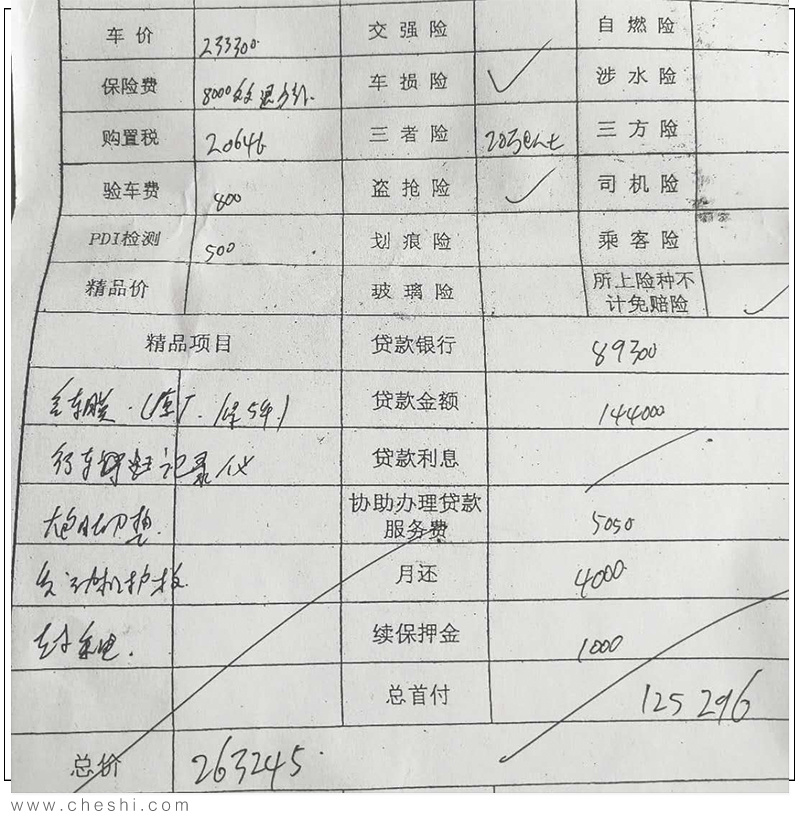 车价 23300 交强险 自燃险
保险费 8000 车损险 ✓ 涉水险
购置税 20646 三者险 三方险
验车费 800 盗抢险 ✓ 司机险
PDI检测 500 划痕险 乘客险
精品价 玻璃险 所上险种不计免赔险 ✓
精品项目 贷款银行 89300
全车膜 贷款金额 144000
行车 记录仪 贷款利息
协助办理贷款服务费 5050
发动机护板 月还 4000
续保押金 1000
总首付 125296
总价 263245
www.cheshi.com